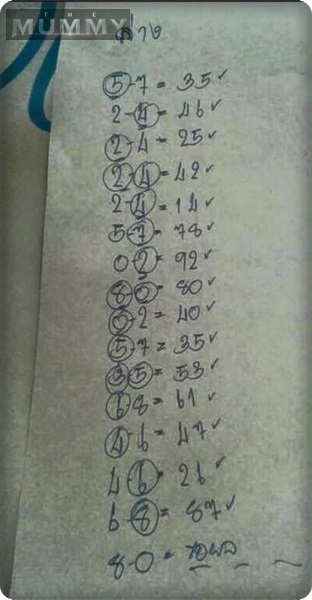 THE
MUMMY
ล่าง
5-7 = 35✓
2-4 = 46✓
2-4 = 25✓
2-4 = 42✓
2-4 = 14✓
5-7 = 78✓
0-2 = 92✓
8-0 = 80✓
0-2 = 40✓
5-7 = 35✓
35 = 53✓
68 = 61✓
46 = 47✓
46 = 26✓
6-8 = 87✓
8-0 =